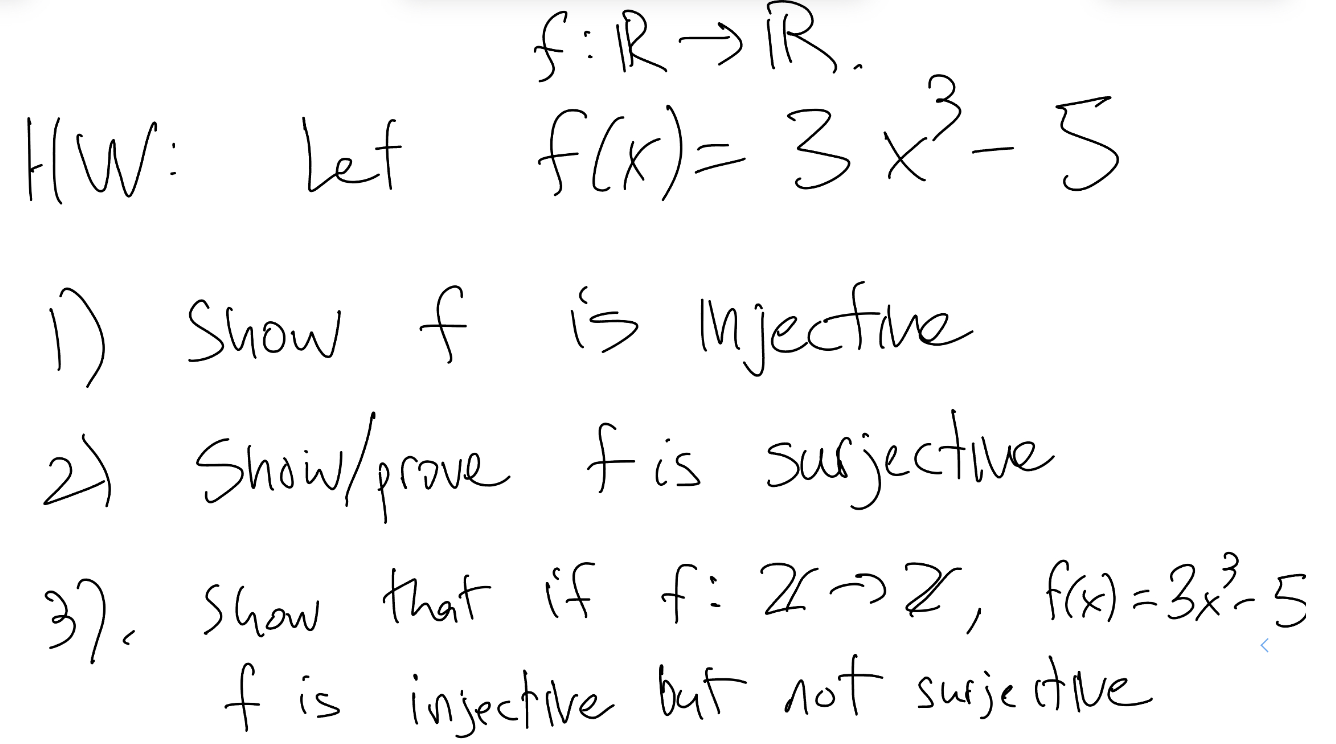 f: ℝ → ℝ.
HW: Let f(x) = 3x³ - 5
1) Show f is injective
2) Show/prove f is surjective
3). Show that if f: ℤ → ℤ, f(x) = 3x³ - 5
f is injective but not surjective